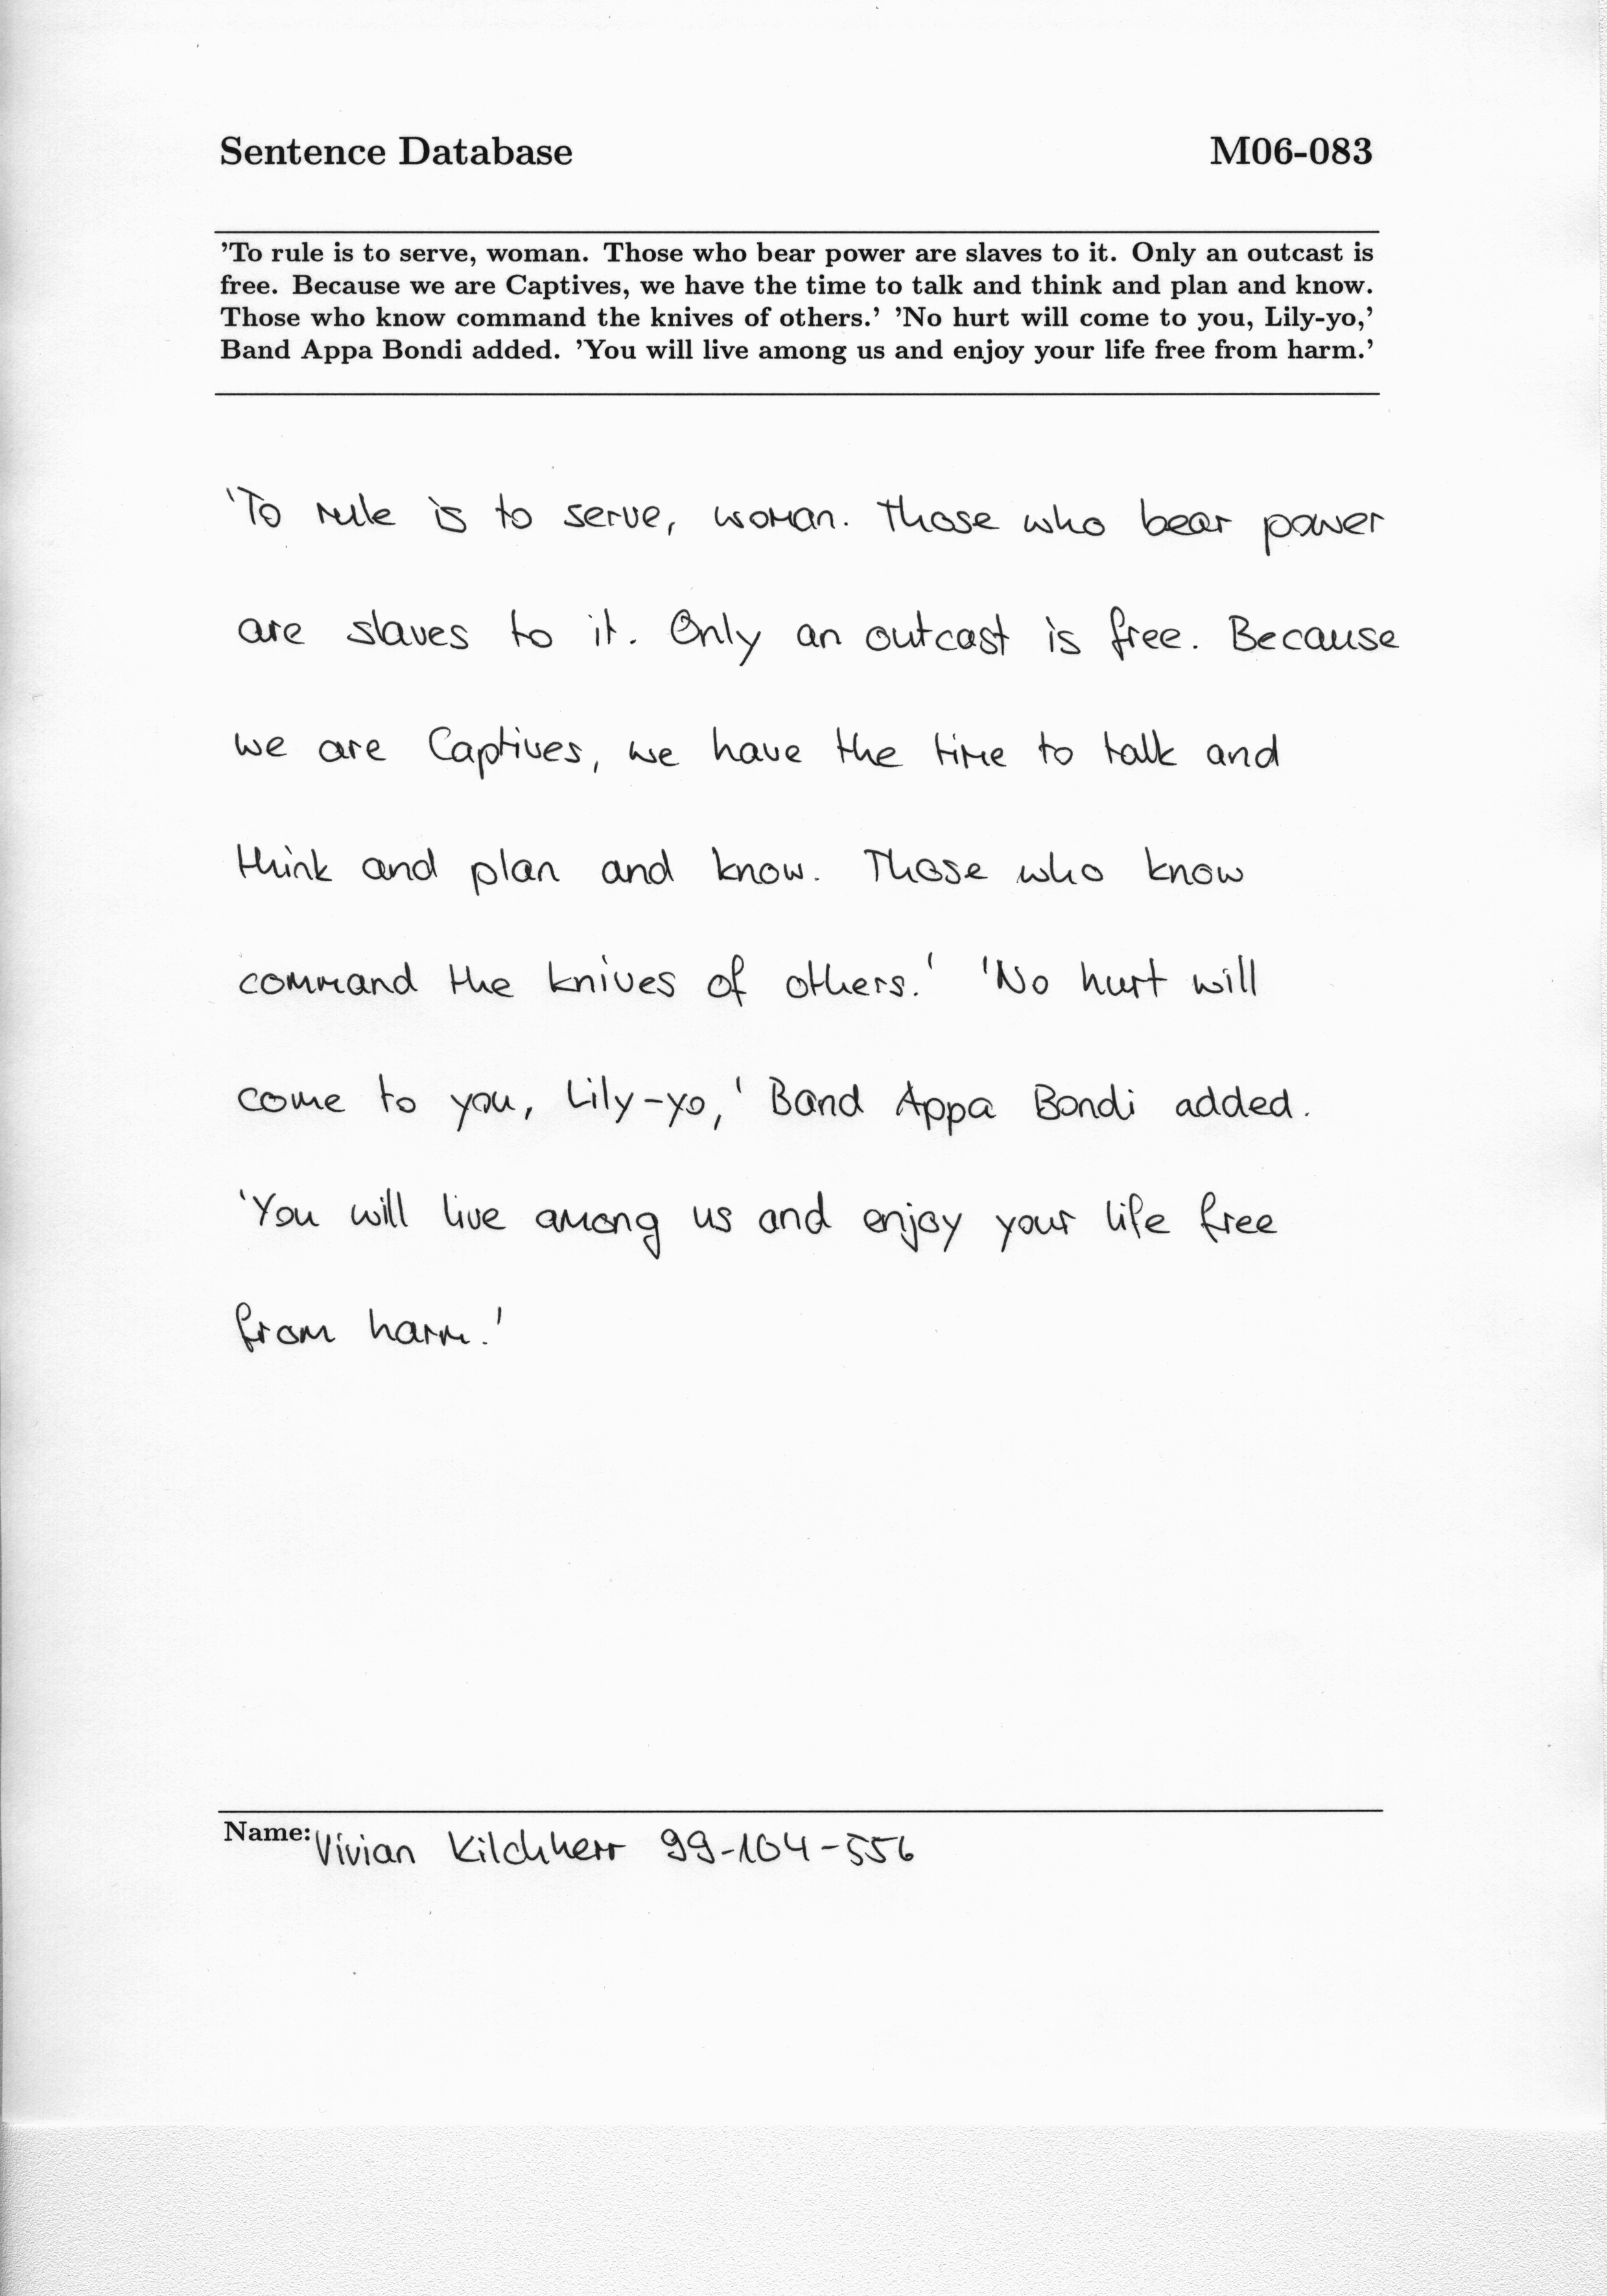 Sentence Database M06-083
’To rule is to serve, woman. Those who bear power are slaves to it. Only an outcast is
free. Because we are Captives, we have the time to talk and think and plan and know.
Those who know command the knives of others.’ ’No hurt will come to you, Lily-yo,’
Band Appa Bondi added. ’You will live among us and enjoy your life free from harm.’
'To rule is to serve, woman. Those who bear power
are slaves to it. Only an outcast is free. Because
we are Captives, we have the time to talk and
think and plan and know. Those who know
command the knives of others.' 'No hurt will
come to you, Lily-yo,' Band Appa Bondi added.
'You will live among us and enjoy your life free
from harm.'
Name: Vivian Kilchherr 99-104-556